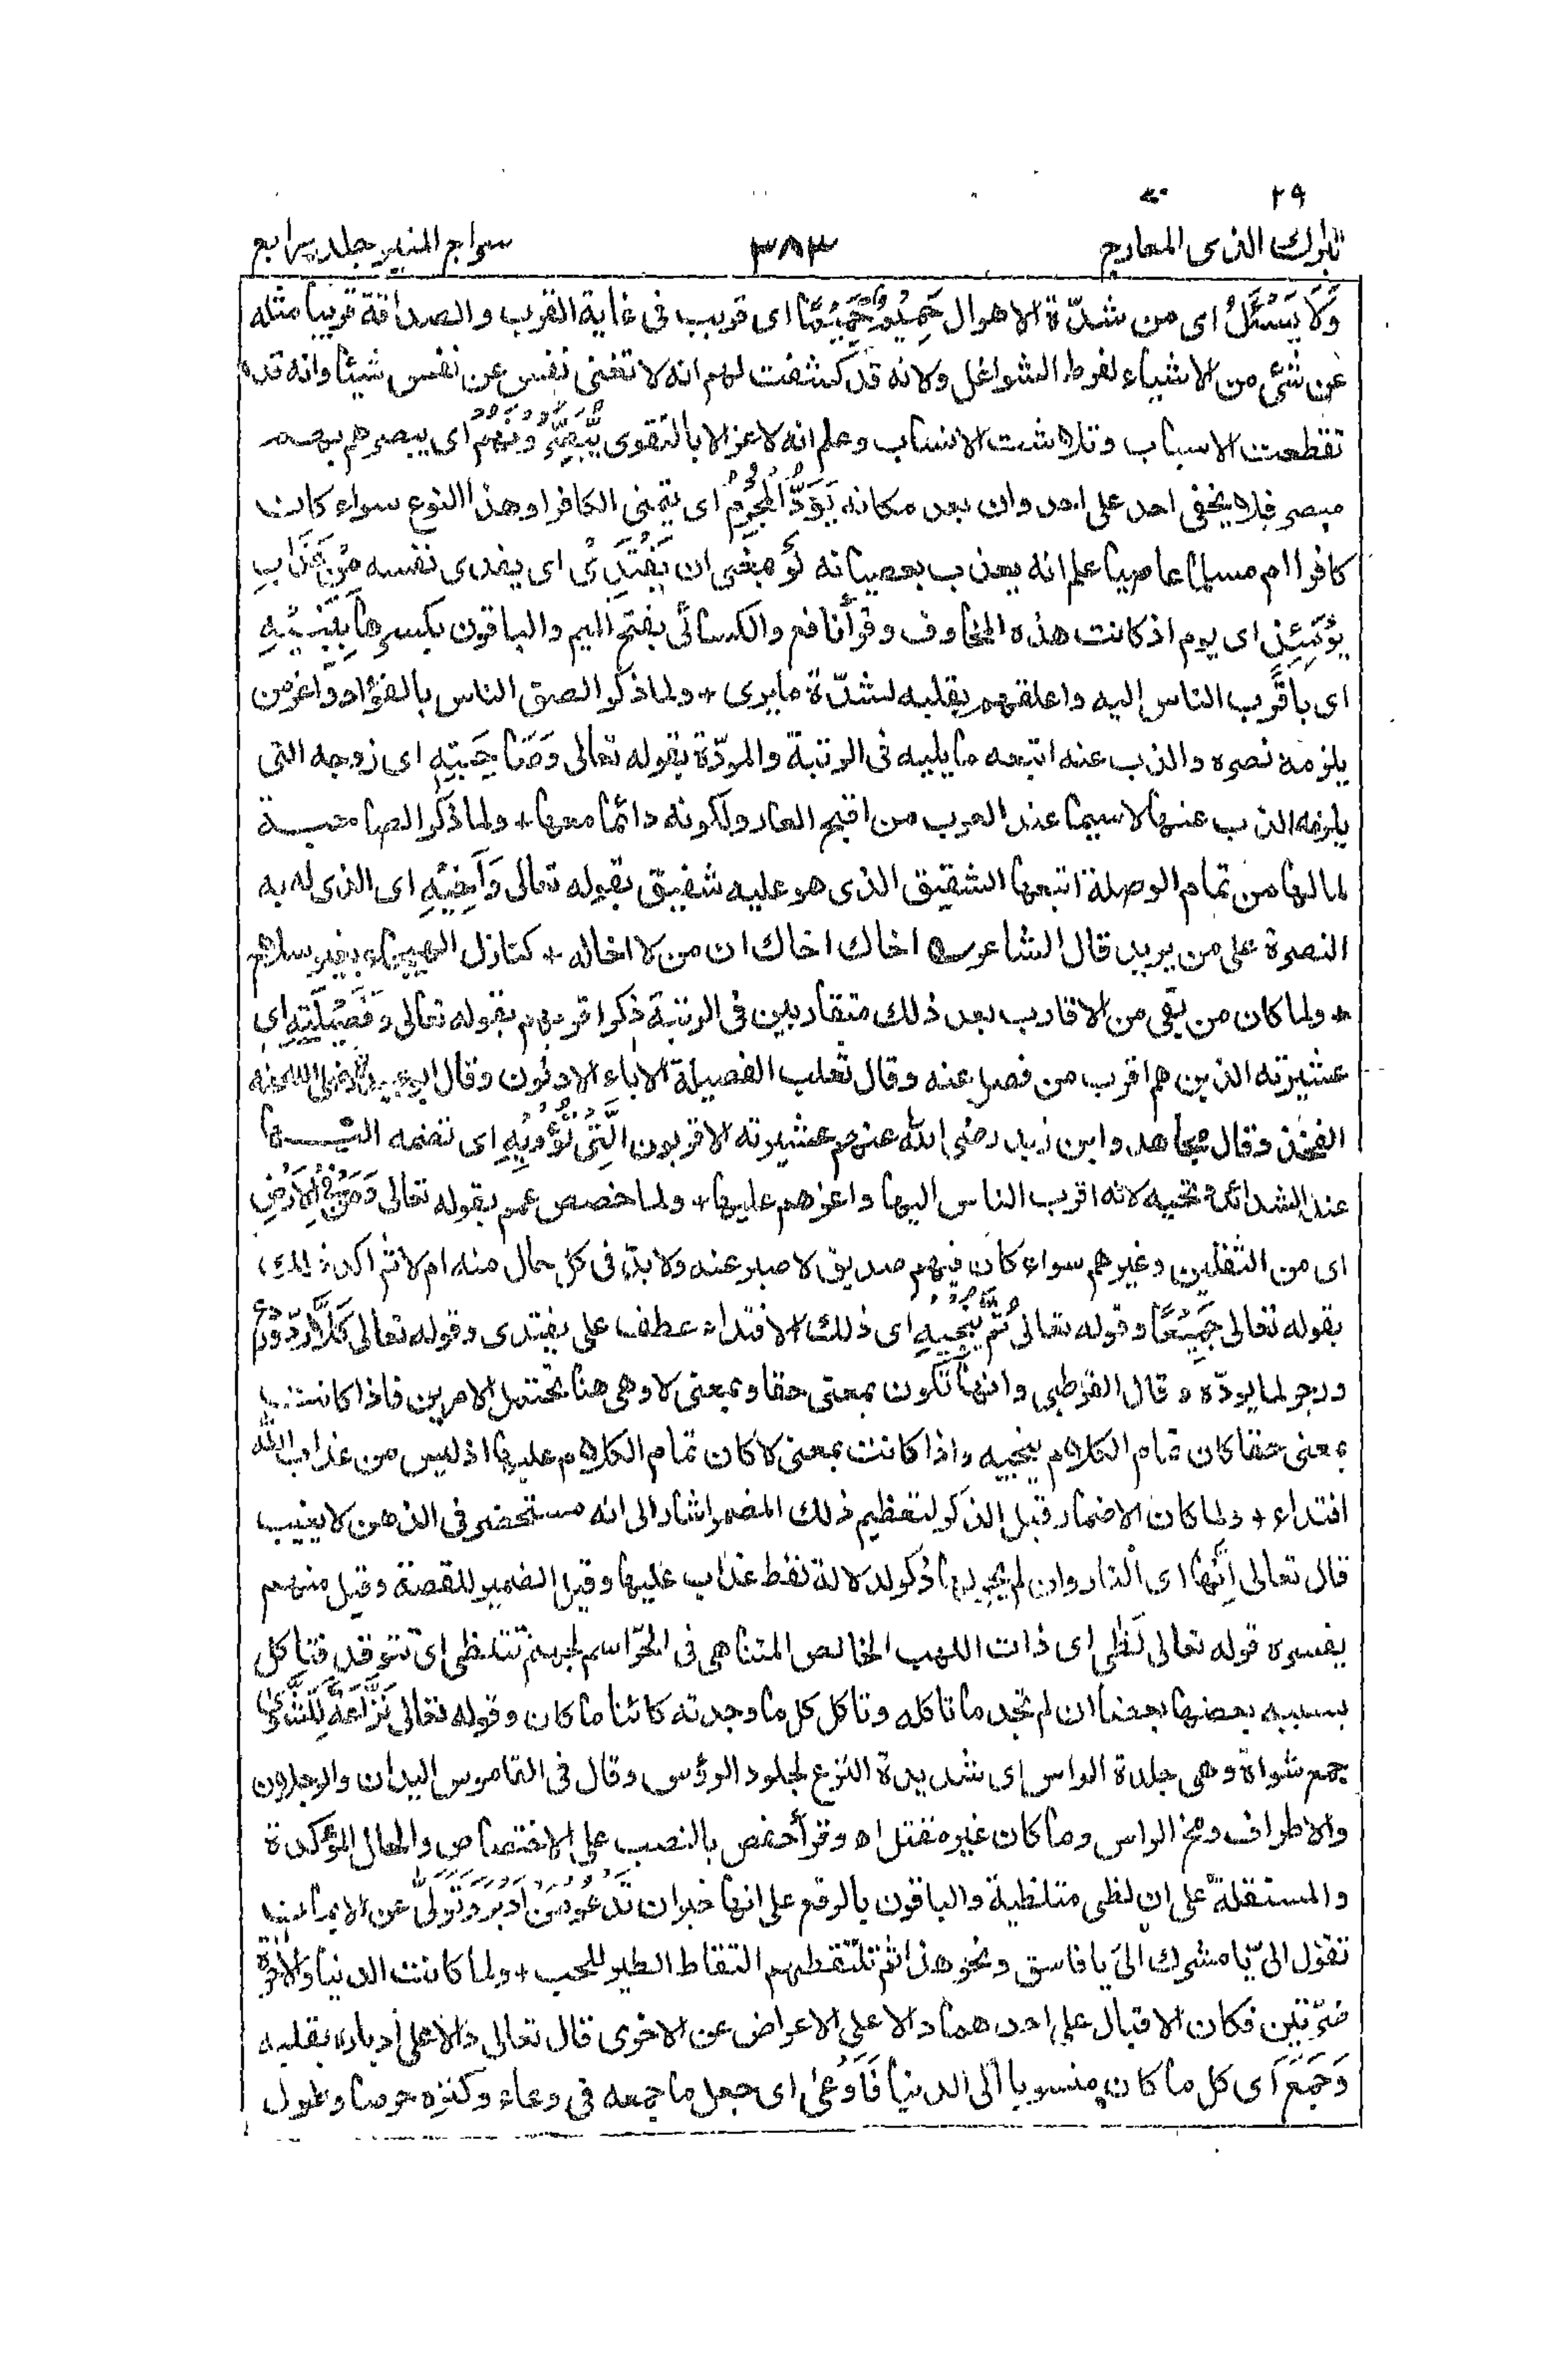 ٢٩
تبارك الذى المعارج
٣٨٣
سراج المنير جلد رابع
وَلَا يَسْئَلُ اى من شدّة الاهوال حَمِيْمٌ حَمِيْمًا اى قريب فى غاية القرب والصداقة قريبا مثله
عن شئ من الاشياء لفرط الشواغل ولانه قد كشفت لهم انه لا تغنى نفس عن نفس شيئا وانه قد
تقطعت الاسباب وتلاشت الانساب وعلم انه لا عز الا بالتقوى يُّبَصَّرُوْنَهُمْ اى يبصرهم بهم
مبصر فلا يخفى احد على احد وان بعد مكانه يَوَدُّ الْمُجْرِمُ اى يتمنى الكافر او هذا النوع سواء كان
كافرا ام مسلما عاصيا علم انه يعذب بعصيانه لَوْ بمعنى ان يَفْتَدِىْ اى يفدى نفسه مِنْ عَذَابِ
يَوْمَئِذٍ اى يوم اذ كانت هذه المخاوف وقرأ نافع والكسائى بفتح الميم والباقون بكسرها بِبَنِيْهِ
اى باقرب الناس اليه واعلقهم بقلبه لشدّة ما يرى + ولما ذكر الصق الناس بالفؤاد واعز من
يلزمه نصره والذب عنه اتبعه ما يليه فى الرتبة والمودّة بقوله تعالى وَصَاحِبَتِهٖ اى زوجه التى
يلزمه الذب عنها لاسيما عند العرب من اقبح العار ولكونه دائما معها + ولما ذكر الصاحبة
لما لها من تمام الوصلة اتبعها الشقيق الذى هو عليه شفيق بقوله تعالى وَاَخِيْهِ اى الذى له به
النصرة على من يريد قال الشاعر اخاك اخاك ان من لا اخاله + كنازل الهيجاء بغير سلاح
+ ولما كان من بقى من الاقارب بعد ذلك متقاربين فى الرتبة ذكر اقربهم بقوله تعالى وَفَصِيْلَتِهِ اى
عشيرته الذين هم اقرب من فصل عنه وقال ثعلب الفصيلة الاباء الادنون وقال ابو عبيدة رضى الله عنه
الفخذ وقال مجاهد وابن زيد رضى الله عنهم عشيرته الاقربون الَّتِىْ تُؤْوِيْهِ اى تضمه اليها
عند الشدائد وتحميه لانه اقرب الناس اليها واعزهم عليها + ولما خصص عمم بقوله تعالى وَمَنْ فِى الْاَرْضِ
اى من الثقلين وغيرهم سواء كان فيهم صديق لا صبر عنه ولا بدّ فى كل حال منه ام لا ثم اكد ذلك
بقوله تعالى جَمِيْعًا وقوله تعالى ثُمَّ يُنْجِيْهِ اى ذلك الافتداء عطف على يفتدى وقوله تعالى كَلَّا ردّ وردع
وزجر لما يودّه وقال القرطبى وانها تكون بمعنى حقا وبمعنى لا وهى هنا تحتمل الامرين فاذا كانت
بمعنى حقا كان تمام الكلام ينجيه واذا كانت بمعنى لا كان تمام الكلام عليها اذ ليس من عذاب الله
افتداء + ولما كان الاضمار قبل الذكر لتعظيم ذلك المضمر اشار الى انه مستحضر فى الذهن لا يغيب
قال تعالى اِنَّهَا اى النار وان لم يجر لها ذكر لدلالة لفظ عذاب عليها وقيل الضمير للقصة وقيل مبهم
يفسره قوله تعالى لَظٰى اى ذات اللهب الخالص المتناهى فى الحرّ اسم لجهنم تتلظى اى تتوقد فتاكل
بسببه بعضها بعضا ان لم تجد ما تاكله وتاكل كل ما وجدته كائنا ما كان وقوله تعالى نَزَّاعَةً لِّلشَّوٰى
جمع شواة وهى جلدة الراس اى شديدة النزع لجلود الرؤس وقال فى القاموس اليدان والرجلان
والاطراف ومخ الراس وما كان غير مقتل اه وقرأ حفص بالنصب على الاختصاص والحال المؤكدة
والمستقلة على ان لظى متلظية والباقون بالرفع على انها خبر ان تَدْعُوْ مَنْ اَدْبَرَ وَتَوَلّٰى عن الايمان
تقول الىّ يا مشرك الىّ يا فاسق ونحو هذا ثم تلتقطهم التقاط الطير للحب + ولما كانت الدنيا والاخرة
ضرّتين فكان الاقبال على احدهما دالا على الاعراض عن الاخرى قال تعالى دالا على ادباره بقلبه
وَجَمَعَ اى كل ما كان منسوبا الى الدنيا فَاَوْعٰى اى جعل ما جمعه فى وعاء وكنزه حرصا وطول